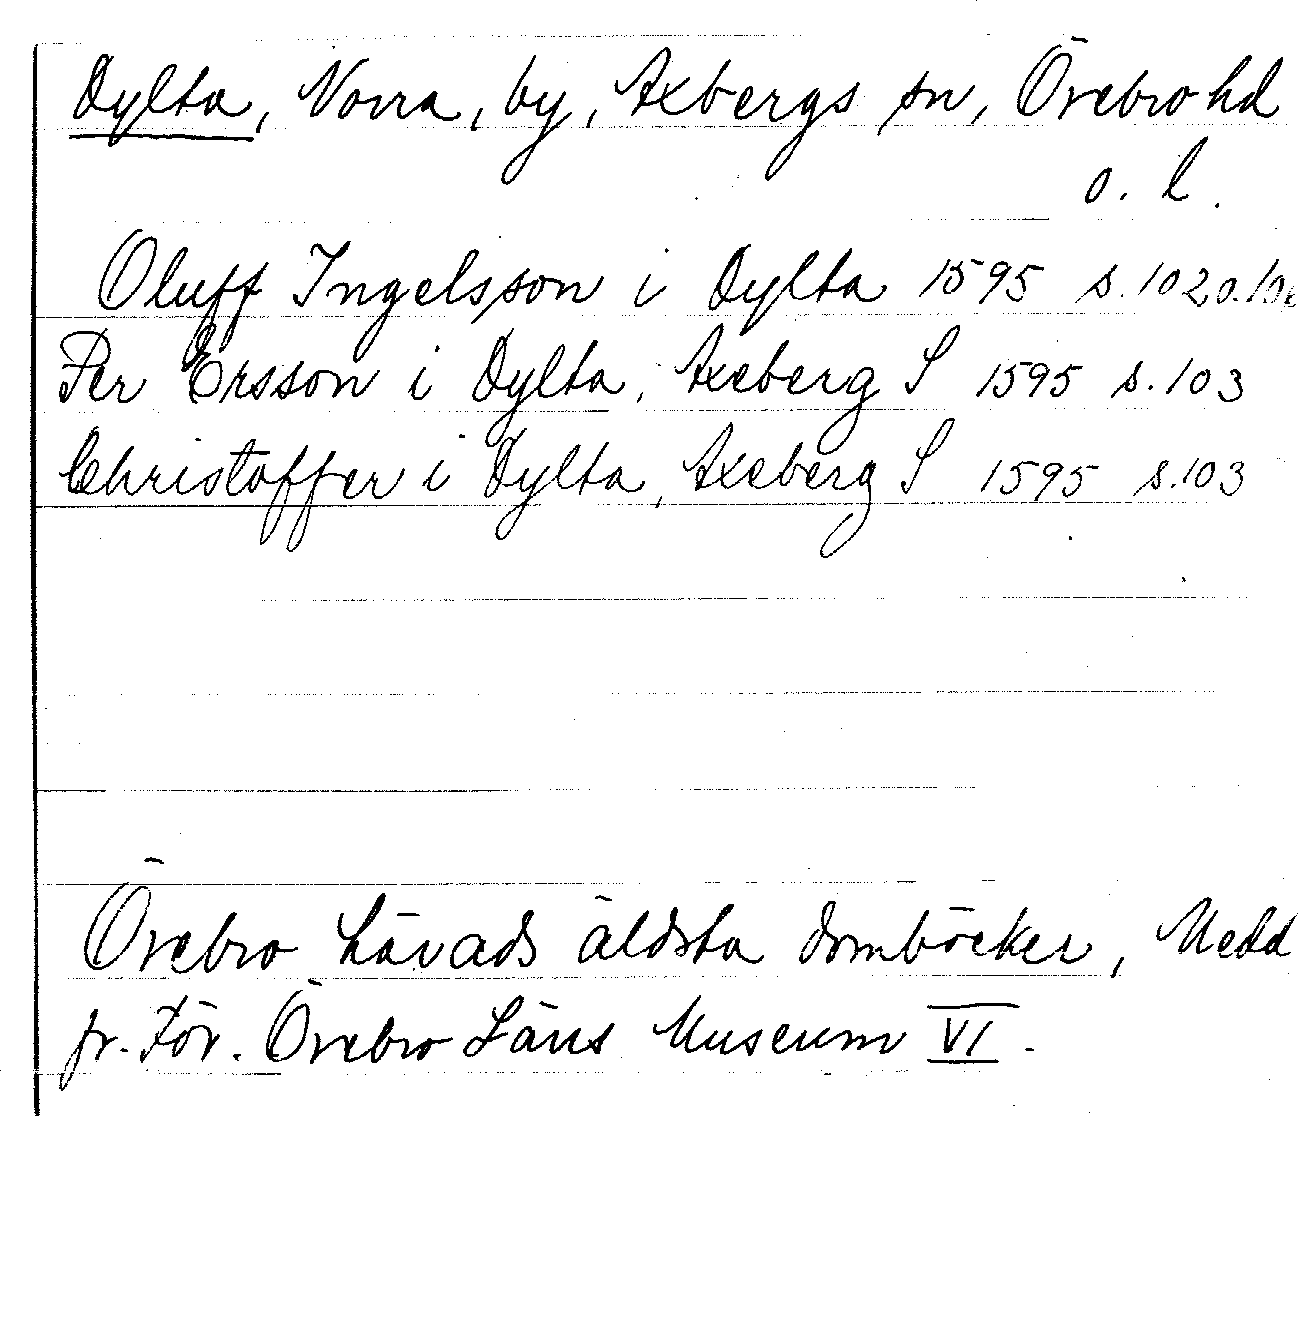 Dylta, Norra, by, Axbergs sn, Örebro hd
o. l.
Oluff Ingelsson i Dylta 1595 s. 102 o.
Per Ersson i Dylta, Axeberg S 1595 s. 103
Christoffer i Dylta, Axeberg S 1595 s. 103
Örebro härads äldsta domböcker, Medd
fr. För. Örebro Läns Museum VI.